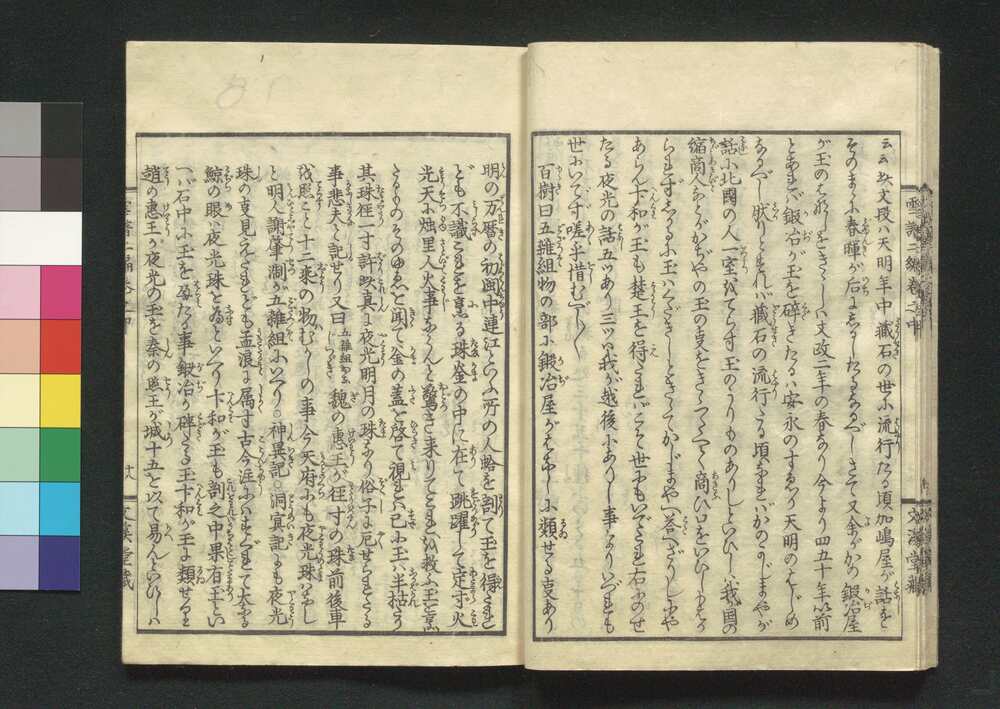 云云此文段ハ天明年中藏石の世に流行たる頃加嶋屋が話を
そのまゝに春暉が后にしるしたるなるべしさて又余がかの鍛冶屋
が玉のはなしをきゝしハ文政二年の春なり今より四五十年以前
とあれバ鍛冶が玉を碎きたるハ安永のすゑか又ハ天明のはじめ
なるべし然りとすれバ藏石の流行たる頃なれバかのかじまやが
話に北國の人一室をてらす玉のうりものありしといひしハ我國の
縮商人などがかぢやの玉の事をきゝつたへて商ひ口をいひしもはか
られずしかるに玉ハくだきしときゝてかじまやへ答へざりしにや
あらん卞和が玉も楚王を得たれバこそ世にもいでたれ右にのせ
たる夜光の話五ツあり三ツハ我が越後にありし事なりいづれも
世にいでず嗟乎惜むべし〱
百樹曰五雜組物の部に鍛冶屋がはなしに類せる事あり
雪譜二編卷之中
文溪堂藏
明の万暦の初閩中連江といふ所の人蛤を剖て玉を得たれ
ども不識これを烹る珠釜の中に在て跳躍して定ず火
光天に燭里人火事ならんと驚き来りてこれを救ふ玉を烹
たるものそのゆゑを聞て釜の蓋を啓て視れバ已に玉ハ半枯たり
其珠径一寸許此真に夜光明月の珠なり俗子に厄せられたる
事悲夫と記せり又曰五雜組おなじつゞき魏の恵王が径寸の珠前後車
を照こと十二乗の物むかしの事今天府にも夜光珠ハなし
と明人謝肇淛が五雜組にいへり○神異記○洞冥記にも夜光
珠の事見えたれども孟浪に属す古今注にハすぐれて大なる
鯨の眼ハ夜光珠を為といへり卞和が玉も剖之中果有玉とい
へバ石中に玉を孕たる事鍛冶が碎たる玉卞和が玉に類せり
趙の惠王が夜光の玉を秦の照王が城十五を以て易んといひしハ
文溪堂藏